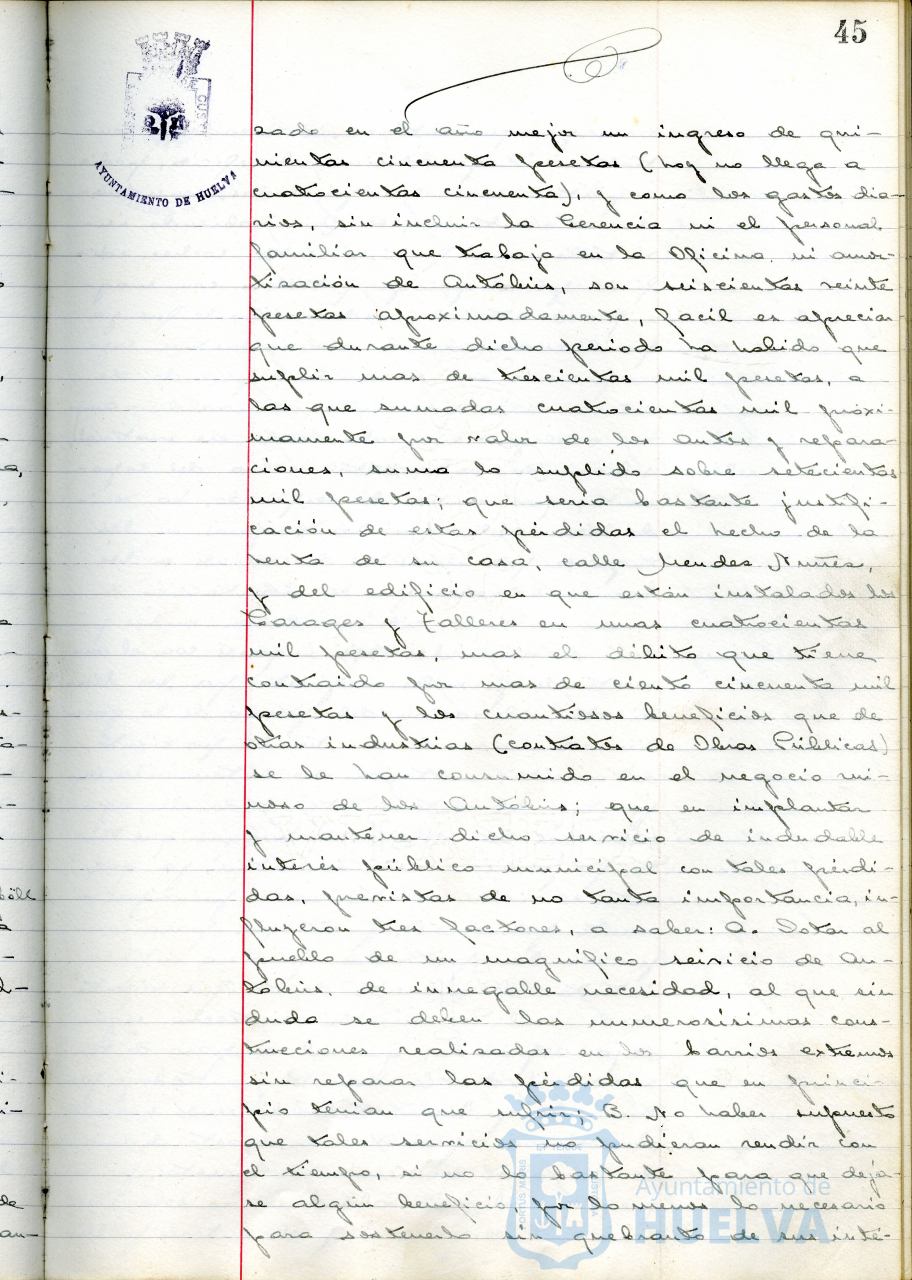 45
AYUNTAMIENTO DE HUELVA
zado en el año mejor un ingreso de qui-
nientas cincuenta pesetas (hoy no llega a
cuatrocientas cincuenta), y como los gastos dia-
rios, sin incluir la Gerencia ni el personal
familiar que trabaja en la Oficina, ni amor-
tización de Autobús, son seiscientas veinte
pesetas aproximadamente, facil es apreciar
que durante dicho periodo ha habido que
suplir mas de trescientas mil pesetas, a
las que sumadas cuatrocientas mil próxi-
mamente por valor de los autos y repara-
ciones, suma lo suplido sobre setecientas
mil pesetas; que sería bastante justifi-
cación de estas pérdidas el hecho de la
venta de su casa, calle Mendez Nuñez,
y del edificio en que están instalados los
Garages y Talleres en unas cuatrocientas
mil pesetas, mas el débito que tiene
contraido por mas de ciento cincuenta mil
pesetas y los cuantiosos beneficios que de
otras industrias (contratos de Obras Públicas)
se le han consumido en el negocio rui-
noso de los Autobús; que en implantar
y mantener dicho servicio de indudable
interés público municipal con tales pérdi-
das, previstas de no tanta importancia, in-
fluyeron tres factores, a saber: A. Dotar al
pueblo de un magnífico servicio de Au-
tobús, de innegable necesidad, al que sin
duda se deben las numerosísimas cons-
trucciones realizadas en los barrios extremos
sin reparar las pérdidas que en princi-
pio tenian que sufrir; B. No haber supuesto
que tales servicios no pudieran rendir con
el tiempo, si no lo bastante para que dejá-
se algún beneficio, por lo menos lo necesario
para sostenerlo sin quebranto de sus inte-
Ayuntamiento de
HUELVA